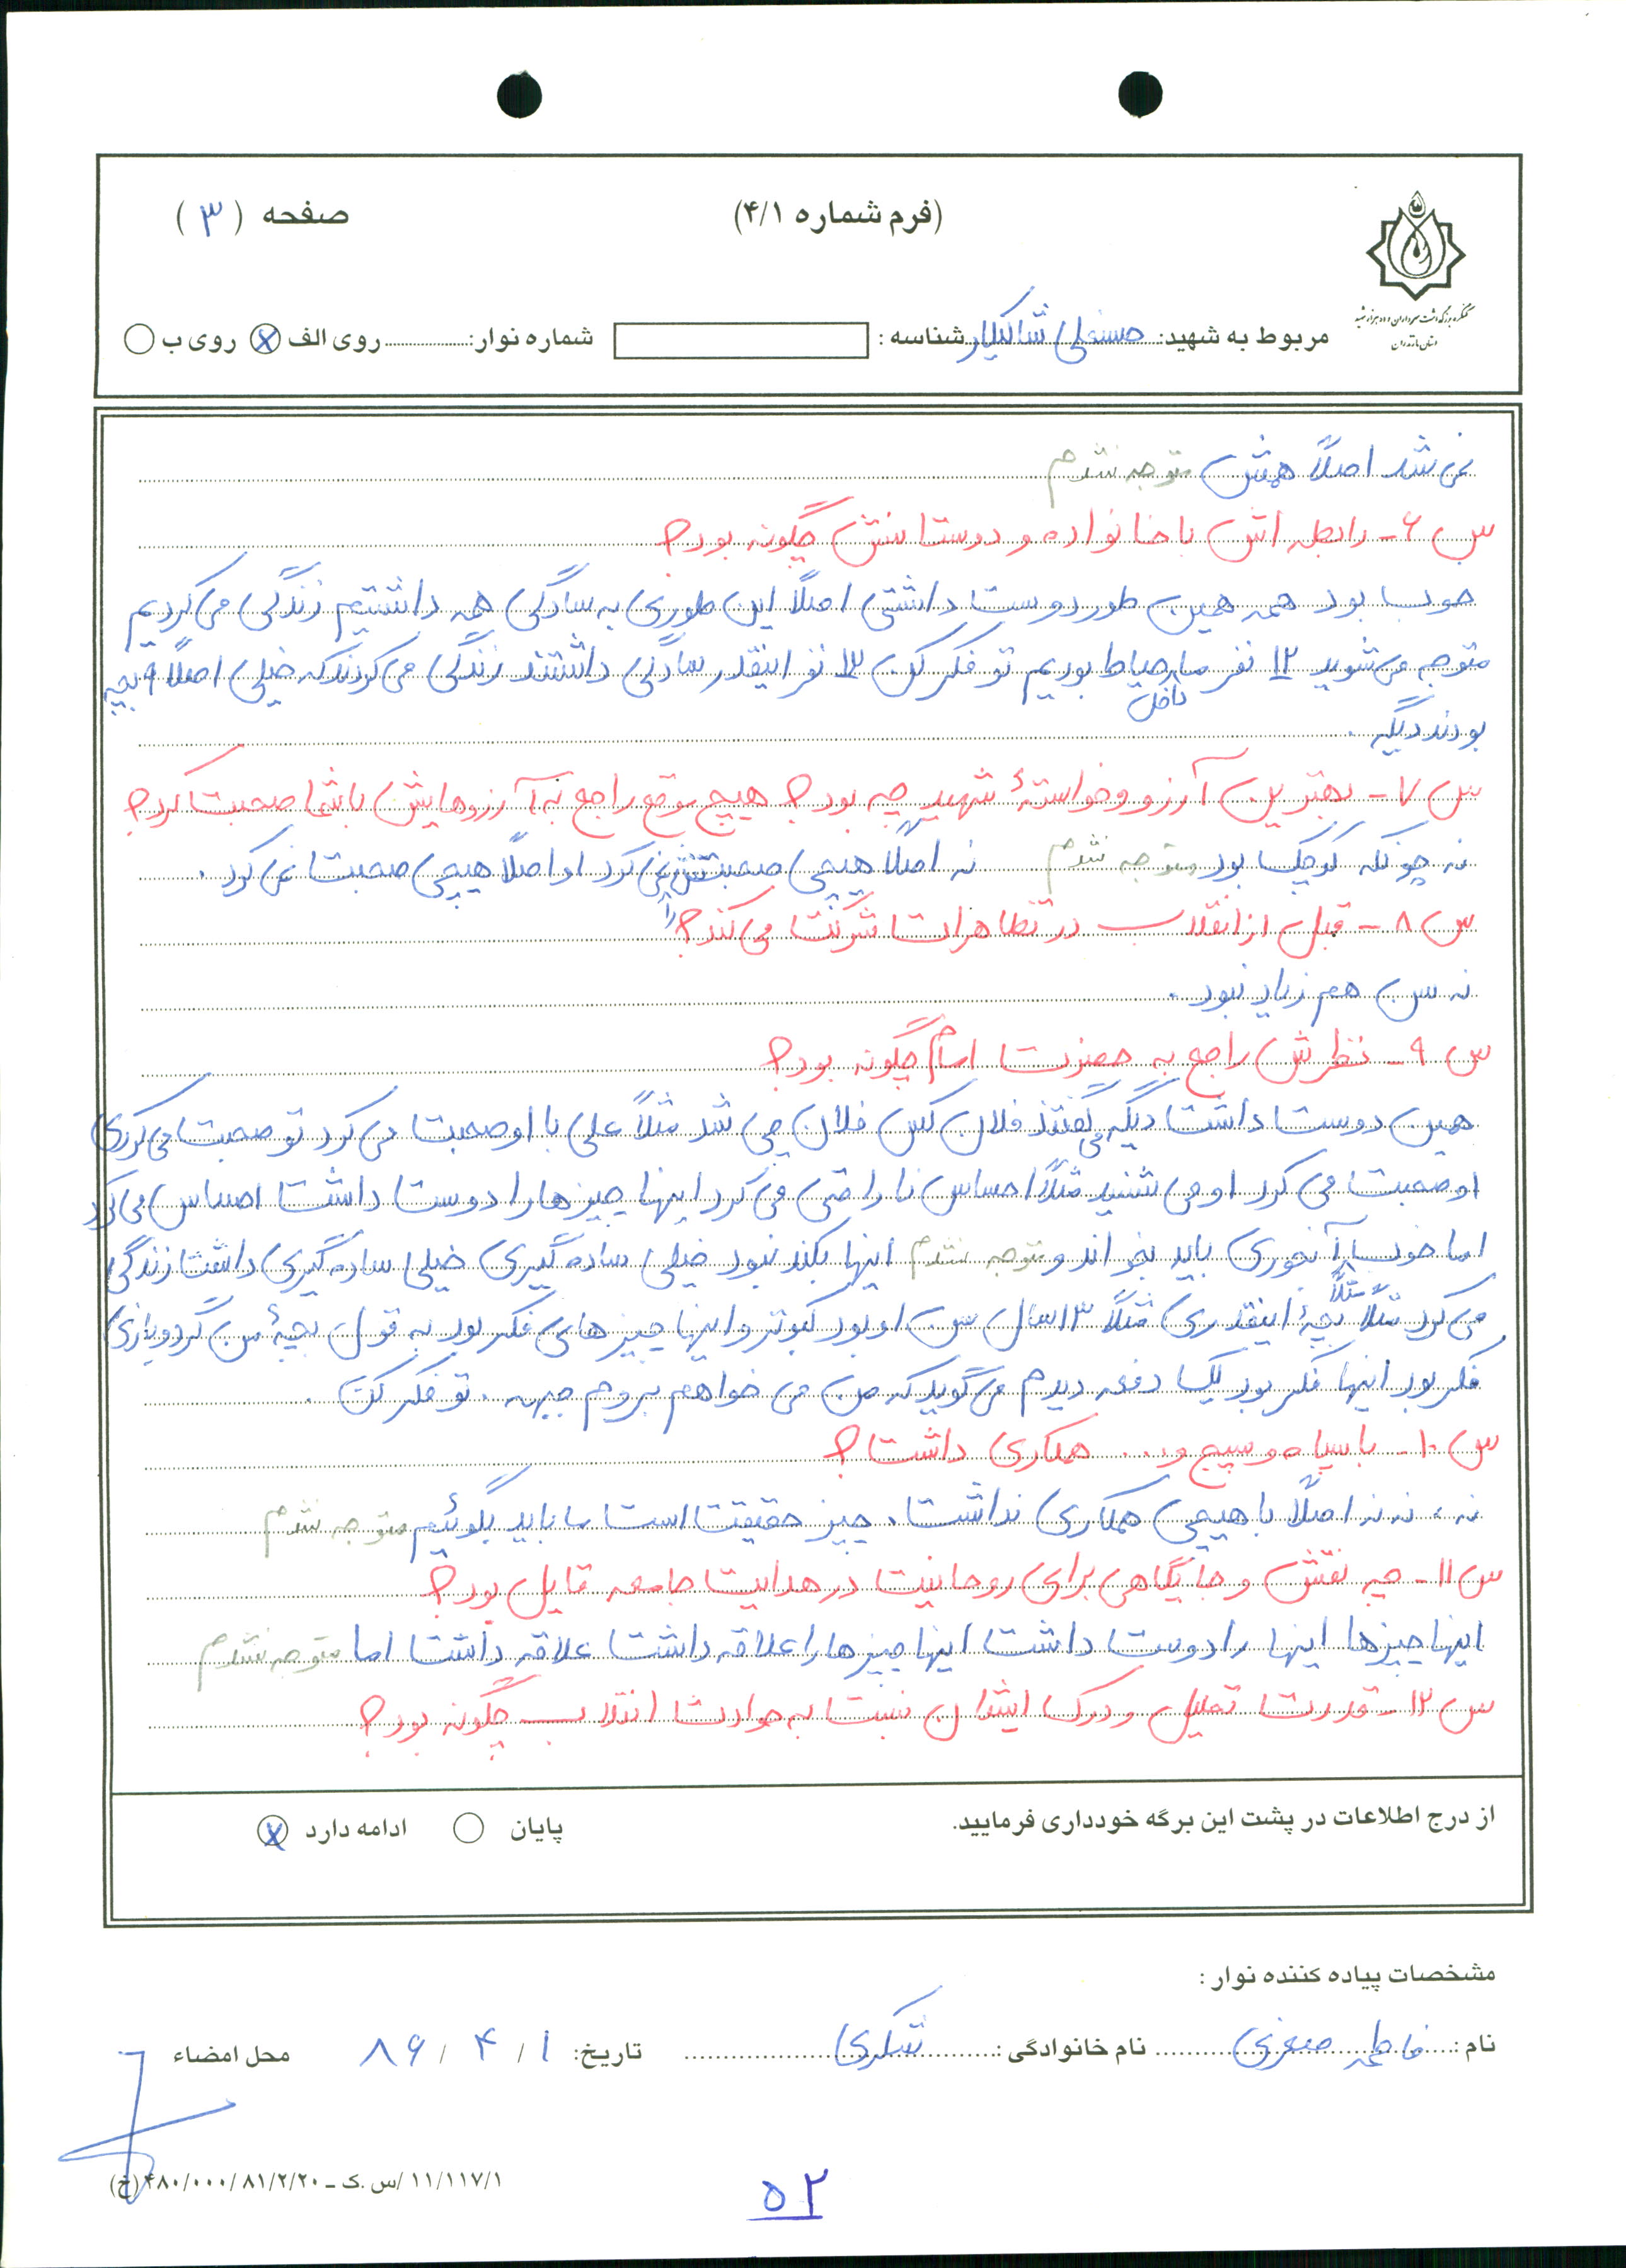 (فرم شماره ۴/۱)
صفحه (۳)
کنگره بزرگداشت سرداران و ده هزار شهید
استان مازندران
مربوط به شهید: حسنعلی شالیکار شناسه: شماره نوار: روی الف ⊗ روی ب ○
نمی شد اصلاً همش متوجه نشدم
س ۶- رابطه اش با خانواده و دوستانش چگونه بود؟
خوب بود همه همین طور دوست داشتی اصلاً این طوری به سادگی همه داشتیم زندگی می کردیم
متوجه می شوید ۱۲ نفر ما داخل حیاط بودیم تو فکر کن ۱۲ نفر اینقدر سادگی داشتند زندگی می کردند که خیلی اصلاً ۹ بچه
بودند دیگه.
س ۷- بهترین آرزو و خواستهٔ شهید چه بود؟ هیچ موقع راجع به آرزوهایش با شما صحبت کرد؟
نه چونکه کوچک بود متوجه نشدم نه اصلاً هیچی صحبت نمی کرد او اصلاً هیچی صحبت نمی کرد.
س ۸- قبل از انقلاب در تظاهرات شرکت می کند؟
نه سن هم زیاد نبود.
س ۹- نظرش راجع به حضرت امام چگونه بود؟
همین دوست داشت دیگه می گفتند فلان کس فلان چی شد مثلاً علی با او صحبت می کرد تو صحبت می کردی
او صحبت می کرد او می شنید مثلاً احساس ناراضی می کرد اینها چیزها را دوست داشت احساس می کرد
اما خوب آنجوری باید بخواند و متوجه نشدم اینها بکند نبود خیلی ساده گیری خیلی ساده گیری داشت زندگی
می کرد مثلاً مثلاً بچهٔ اینقدری مثلاً ۱۳ سال سن او بود کبوتر و اینها چیزهای فکر بود به قول بچهٔ من گردو بازی
فکر بود اینها فکر بود یک دفعه دیدم می گوید که من می خواهم بروم جبهه. تو فکر کن.
س ۱۰- با سپاه و بسیج و... همکاری داشت؟
نه، نه نه اصلاً با هیچی همکاری نداشت. چیز حقیقت است ما باید بگوئیم متوجه نشدم
س ۱۱- چه نقش و جایگاهی برای روحانیت در هدایت جامعه قایل بود؟
اینها چیزها اینها را دوست داشت اینها چیزها را علاقه داشت علاقه داشت اما متوجه نشدم
س ۱۲- قدرت تحلیل و درک ایشان نسبت به حوادث انقلاب چگونه بود؟
از درج اطلاعات در پشت این برگه خودداری فرمایید. پایان ○ ادامه دارد ⊗
مشخصات پیاده کننده نوار:
نام: فاطمه صغری نام خانوادگی: شکری تاریخ: ۱ / ۴ / ۸۶ محل امضاء
۱۱/۱۱۷/۱ /س.ک – ۸۱/۲/۲۰ /۴۸۰/۰۰۰ (خ)
۵۲